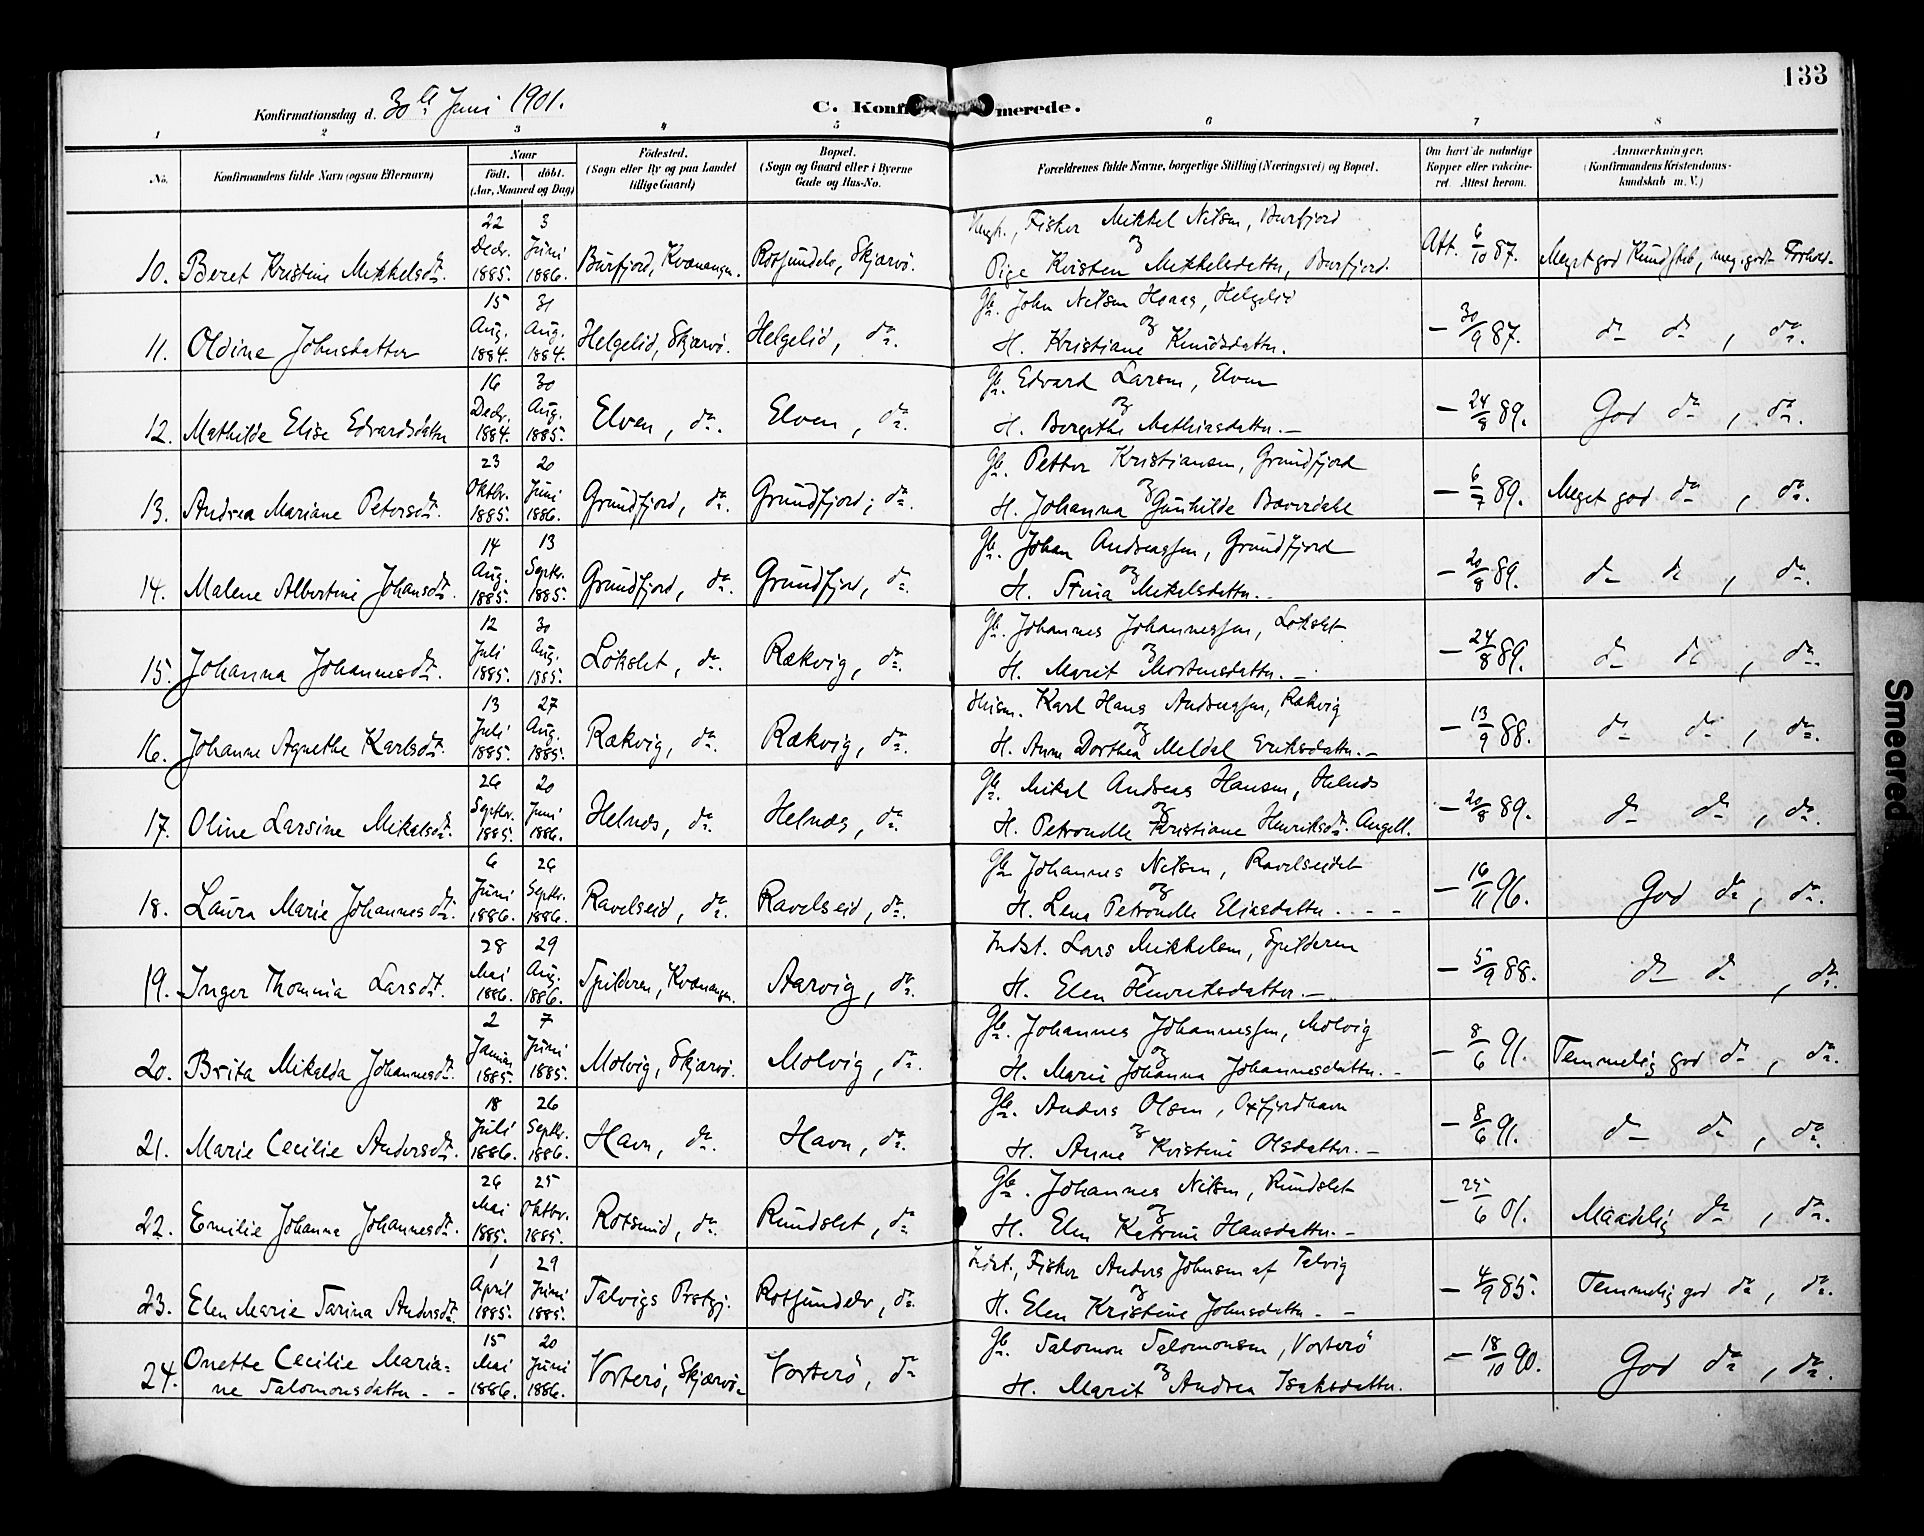 133
Konfirmationsdag d. 30te Juni 1901.
C. Konfi merede.
1 2 3 4 5 6 7 8
No. Konfirmandens fulde Navn (ogsaa Efternavn) Naar født. døbt. (Aar, Maaned og Dag) Fødested. (Sogn eller By og paa Landet tillige Gaard) Bopæl. (Sogn og Gaard eller i Byerne Gade og Hus-No. Forældrenes fulde Navne, borgerlige Stilling (Næringsvei) og Bopæl. Om havt de naturlige Kopper eller vakcineret. Attest herom. Anmærkninger, (Konfirmandens Kristendomskundskab m. V.)
10. Beret Kristine Mikkelsdtr. 22 Decbr. 1885. 3 Juni 1886. Burfjord, Kvænangen. Rotsundelv, Skjærvö. Ungk., Fisker Mikkel Nilsen, Burfjord
og
Pige Kristen Mikkelsdatter, Burfjord. Att. 6/10 87. Meget god Kundskab, meg. godt Forhold.
11. Oldine Johnsdatter 15 Aug. 1884. 31 Aug. 1884. Helgelid, Skjærvö. Helgelid, do. Gbr. John Nilsen Haaas, Helgelid
og
H. Kristiane Knudsdatter. — 30/9 87. do do, do.
12. Mathilde Elise Edvardsdatter 16 Decbr. 1884. 30 Aug. 1885. Elven, do. Elven, do. Gbr. Edvard Larsen, Elven
og
H. Bergithe Mathiasdatter. — — 24/8 89. God do, do.
13. Andrea Mariane Petersdtr. 23 Oktbr. 1885. 20 Juni 1886. Grundfjord, do. Grundfjord, do. Gbr. Petter Kristiansen, Grundfjord
og
H. Johanna Gunhilde Baverdahl — 6/7 89. Meget god do, do.
14. Malene Albertine Johansdtr. 14 Aug. 1885. 13 Septbr. 1885. Grundfjord, do. Grundfjord, do. Gbr. Johan Andreassen, Grundfjord
og
H. Stina Mikelsdatter. — 20/8 89. do do, do.
15. Johanna Johannesdtr. 12 Juli 1885. 30 Aug. 1885. Lökslet, do. Rækvig, do. Gbr. Johannes Johannessen, Lökslet
og
H. Marit Mortensdatter. — — 24/8 89. do do, do.
16. Johanne Agnethe Karlsdtr. 13 Juli 1885. 27 Aug. 1885. Rækvig, do. Rækvig, do. Husm. Karl Hans Andreassen, Rækvig
og
H. Anne Dorthea Meldal Eriksdatter. — — 13/9 88. do do, do.
17. Oline Larsine Mikalsdtr. 26 Septbr. 1885. 20 Juni 1886. Helnæs, do. Helnæs, do. Gbr. Mikal Andreas Hansen, Helnæs
og
H. Petronelle Kristiane Henriksdtr. Angell. — 20/8 89. do do, do.
18. Laura Marie Johannesdtr. 6 Juni 1886. 26 Septbr. 1886. Ravelseid, do. Ravelseid, do. Gbr. Johannes Nilsen, Ravelseidet
og
H. Lena Petronelle Eliasdatter. — — 16/11 96. God do, do.
19. Inger Thomina Larsdtr. 28 Mai 1886. 29 Aug. 1886. Spilderen, Kvænangen. Aarvig, do. Indst. Lars Mikkelsen, Spilderen
og
H. Elen Henriksdatter. — — 5/9 88. do do, do.
20. Brita Mikalda Johannesdtr. 2 Januar 1885. 7 Juni 1885. Molvig, Skjærvö. Molvig, do. Gbr. Johannes Johannessen, Molvig
og
H. Marie Johanna Johannesdatter. — — 8/6 91. Temmelig god do, do.
21. Marie Cecilie Andersdtr. 18 Juli 1886. 26 Septbr. 1886. Havn, do. Havn, do. Gbr. Anders Olsen, Oxfjordhavn
og
H. Anne Kristine Olsdatter. — — 8/6 91. do do, do.
22. Emilie Johanna Johannesdtr. 26 Mai 1885. 25 Oktbr. 1885. Rotsund, do. Rundslet, do. Gbr. Johannes Nilsen, Rundslet
og
H. Elen Katrine Hansdatter. — — 25/6 01. Maadelig do, do.
23. Elen Marie Tarina Andersdtr. 1 April 1885. 29 Juni 1885. Talvigs Prstgj. Rotsundelv, do. Indst., Fisker Anders Johnsen af Talvig
og
H. Elen Kristine Johnsdatter — — 4/9 85. Temmelig god do, do.
24. Onette Cecilie Maria=
ne Salomonsdatter — 15 Mai 1886. 20 Juni 1886. Vorterö, Skjærvö. Vorterö, do Gbr. Salomon Salomonsen, Vorterö
og
H. Marit Andrea Isaksdatter. — 18/10 90. God do, do.
Smeared